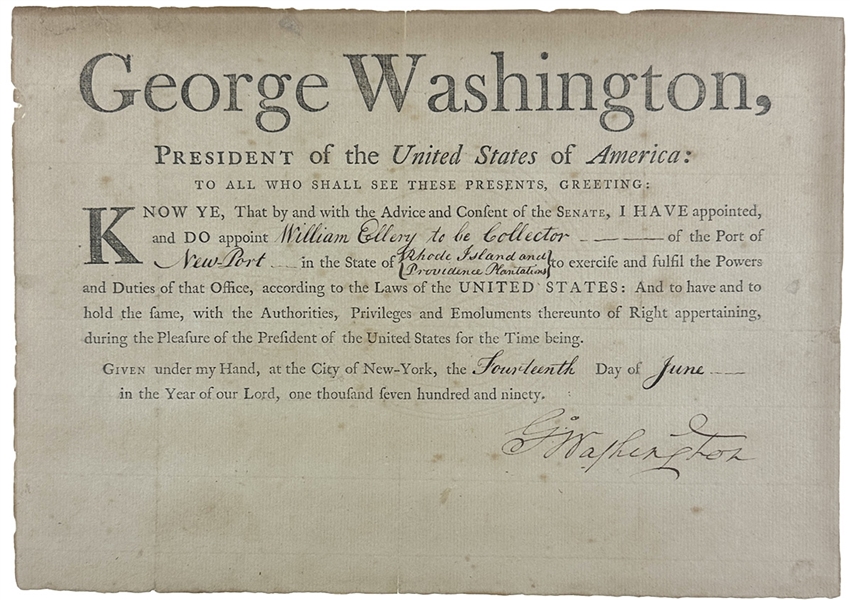 George Washington,
PRESIDENT of the United States of America:
TO ALL WHO SHALL SEE THESE PRESENTS, GREETING:
KNOW YE, That by and with the Advice and Conſent of the SENATE, I HAVE appointed,
and DO appoint William Ellery to be Collector — — — of the Port of
New-Port — in the State of {Rhode Island and
Providence Plantations} to exerciſe and fulfil the Powers
and Duties of that Office, according to the Laws of the UNITED STATES: And to have and to
hold the ſame, with the Authorities, Privileges and Emoluments thereunto of Right appertaining,
during the Pleaſure of the Preſident of the United States for the Time being.
GIVEN under my Hand, at the City of New-York, the Fourteenth Day of June —
in the Year of our Lord, one thouſand ſeven hundred and ninety.
Go Waſhington